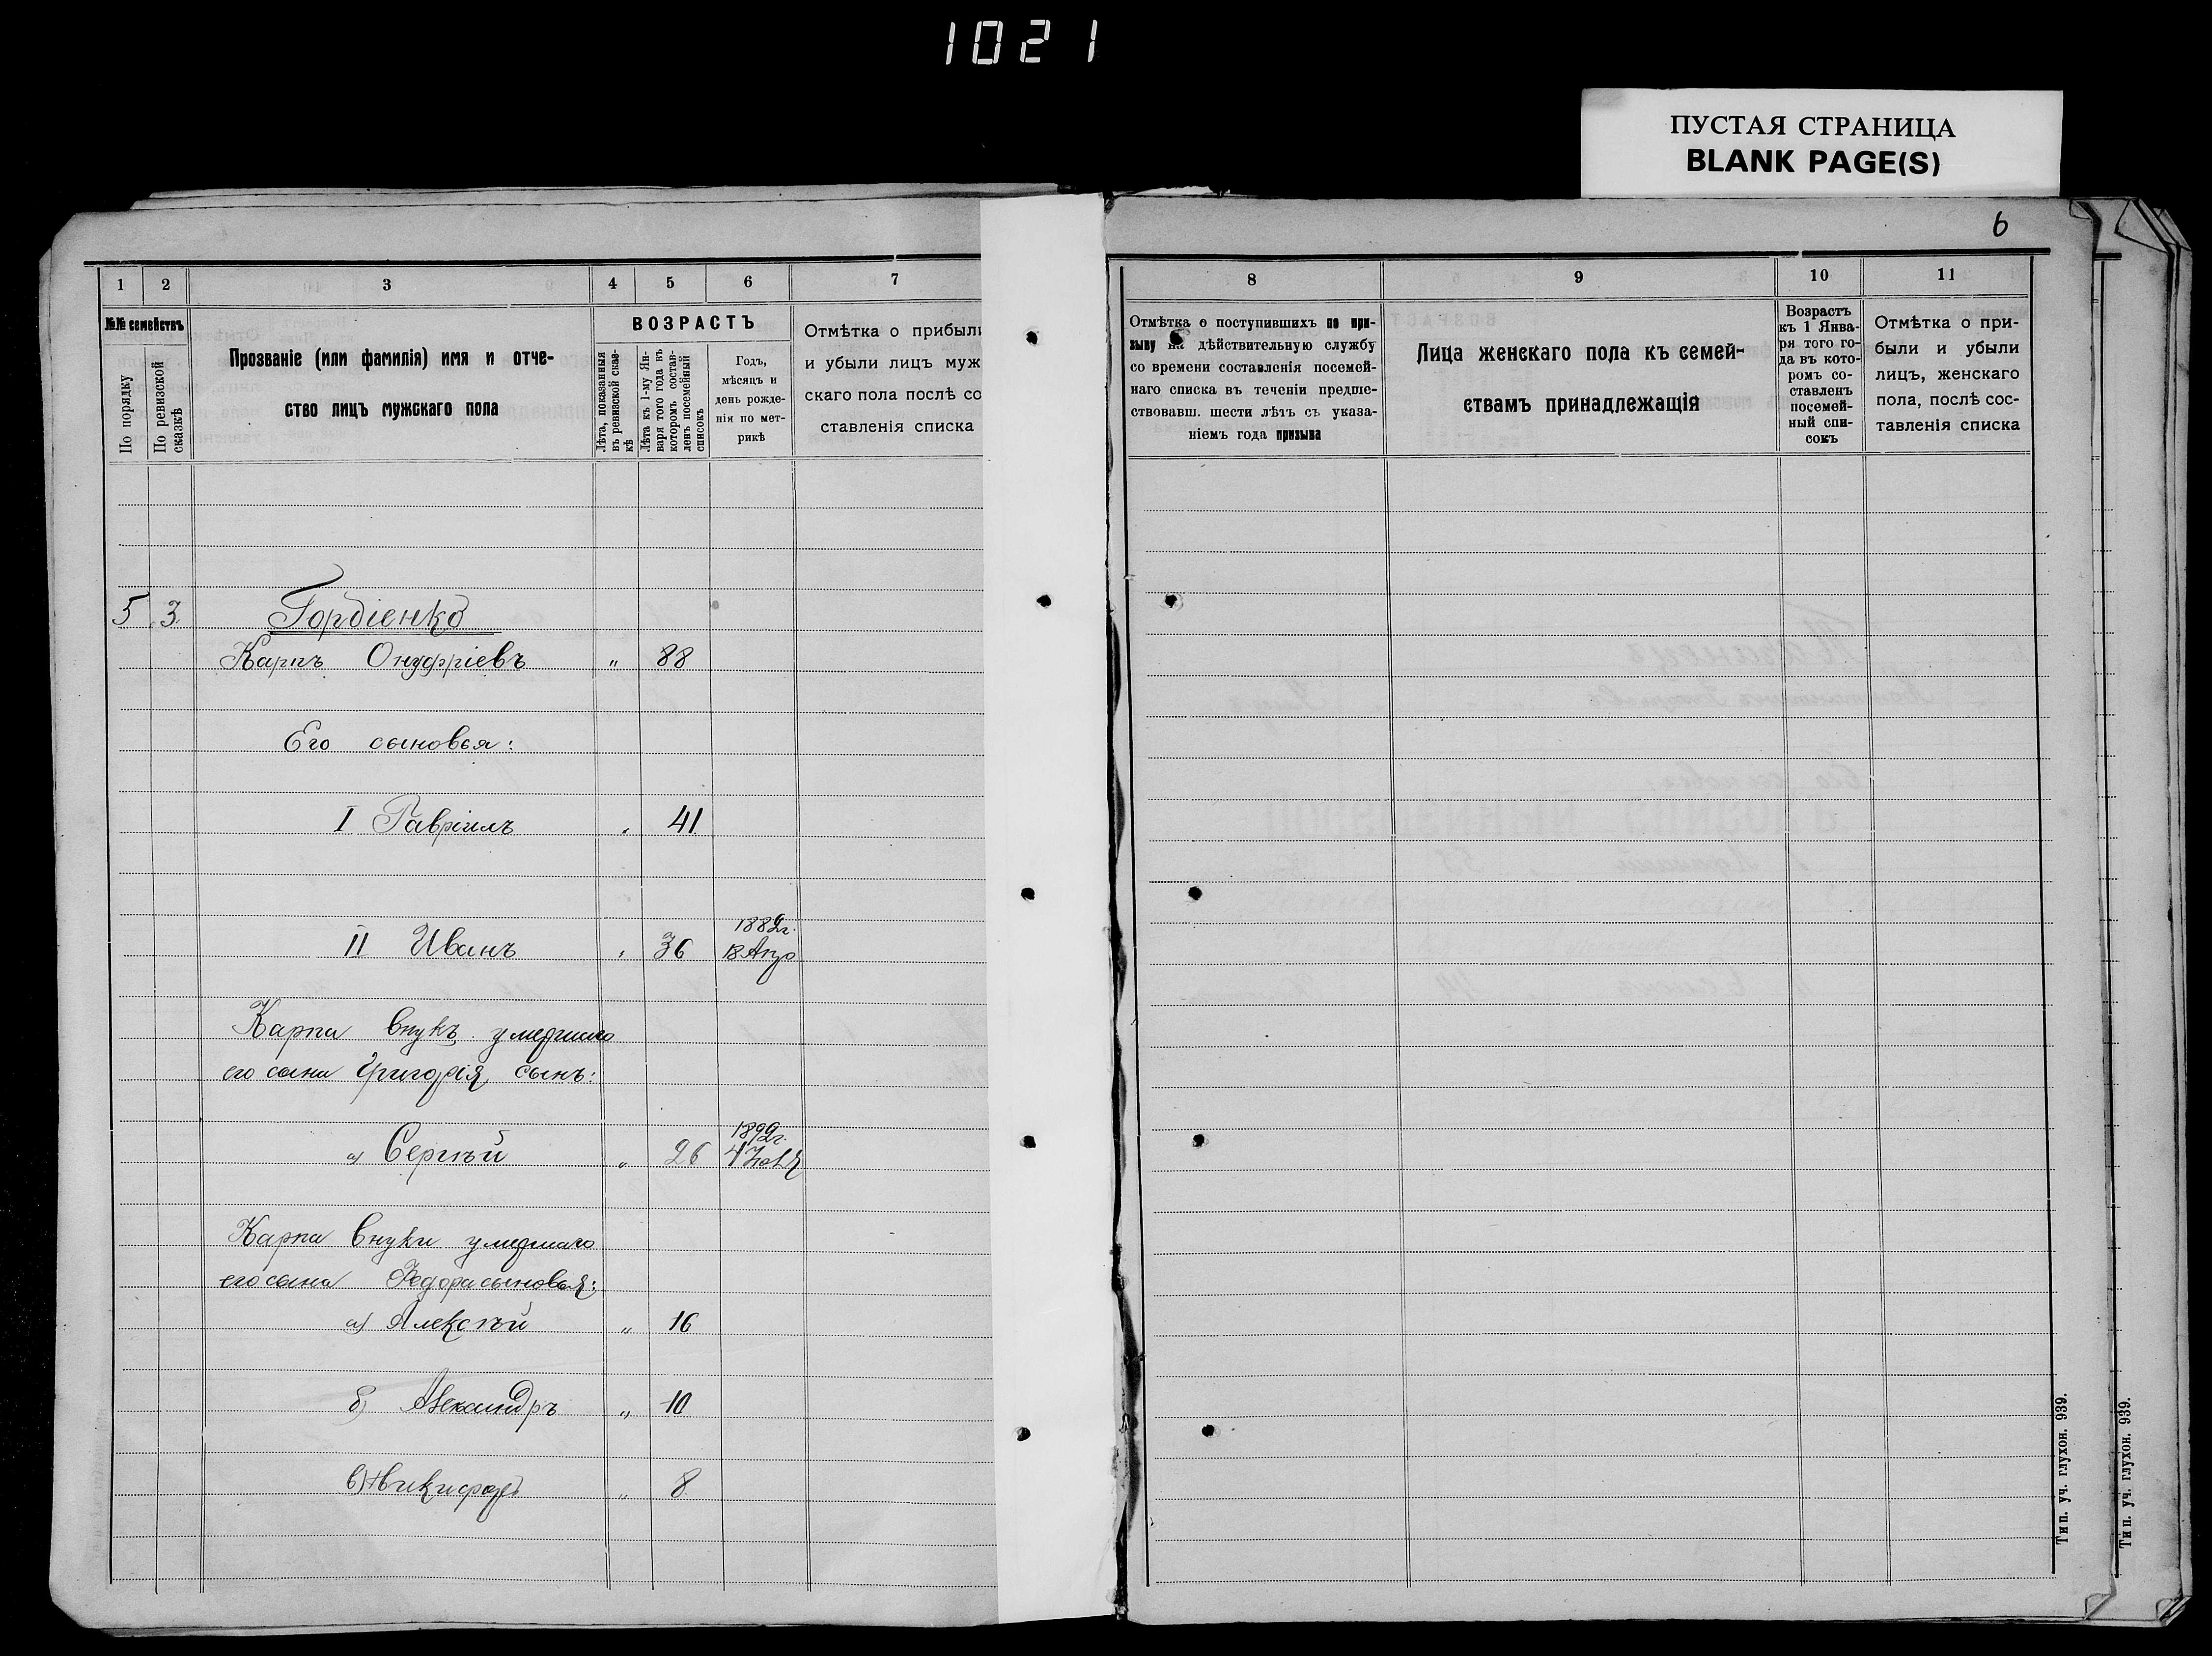 1021
ПУСТАЯ СТРАНИЦА
BLANK PAGE(S)
6
1 2 3 4 5 6 7
№№ семействъ
По порядку
По ревизской сказкѣ
Прозваніе (или фамилія) имя и отче-
ство лицъ мужскаго пола
ВОЗРАСТЪ
Лѣта, показанныя
въ ревизской сказ-
кѣ
Лѣта къ 1-му Ян-
варя того года въ
которомъ состав-
ленъ посемейный
списокъ
Годъ,
мѣсяцъ и
день рожде-
нія по мет-
рикѣ
Отмѣтка о прибыли
и убыли лицъ муж
скаго пола послѣ со
ставленія списка
5 3 Гордіенко
Карпъ Онуфріевъ " 88
Его сыновья:
I Гавріилъ " 41
1882г.
II Иванъ " 36 18 Апр
Карпа внукъ умершаго
его сына Григорія сынъ:
1892г.
а) Сергѣй " 26 4
Карпа внуки умершаго
его сына Федора сыновья:
а) Алексѣй " 16
б) Александръ " 10
в) Никифоръ " 8
8 9 10 11
Отмѣтка о поступившихъ по при-
зыву на дѣйствительную службу
со времени составленія посемей-
наго списка въ теченіи предше-
ствовавш. шести лѣтъ съ указа-
ніемъ года призыва
Лица женскаго пола къ семей-
ствамъ принадлежащія
Возрастъ
къ 1 Янва-
ря того го-
да въ кото-
ромъ со-
ставленъ
посемей-
ный спи-
сокъ
Отмѣтка о при-
были и убыли
лицъ, женскаго
пола, послѣ сос-
тавленія списка
Тип. уч. глухон. 939.
Тип. уч. глухон. 939.